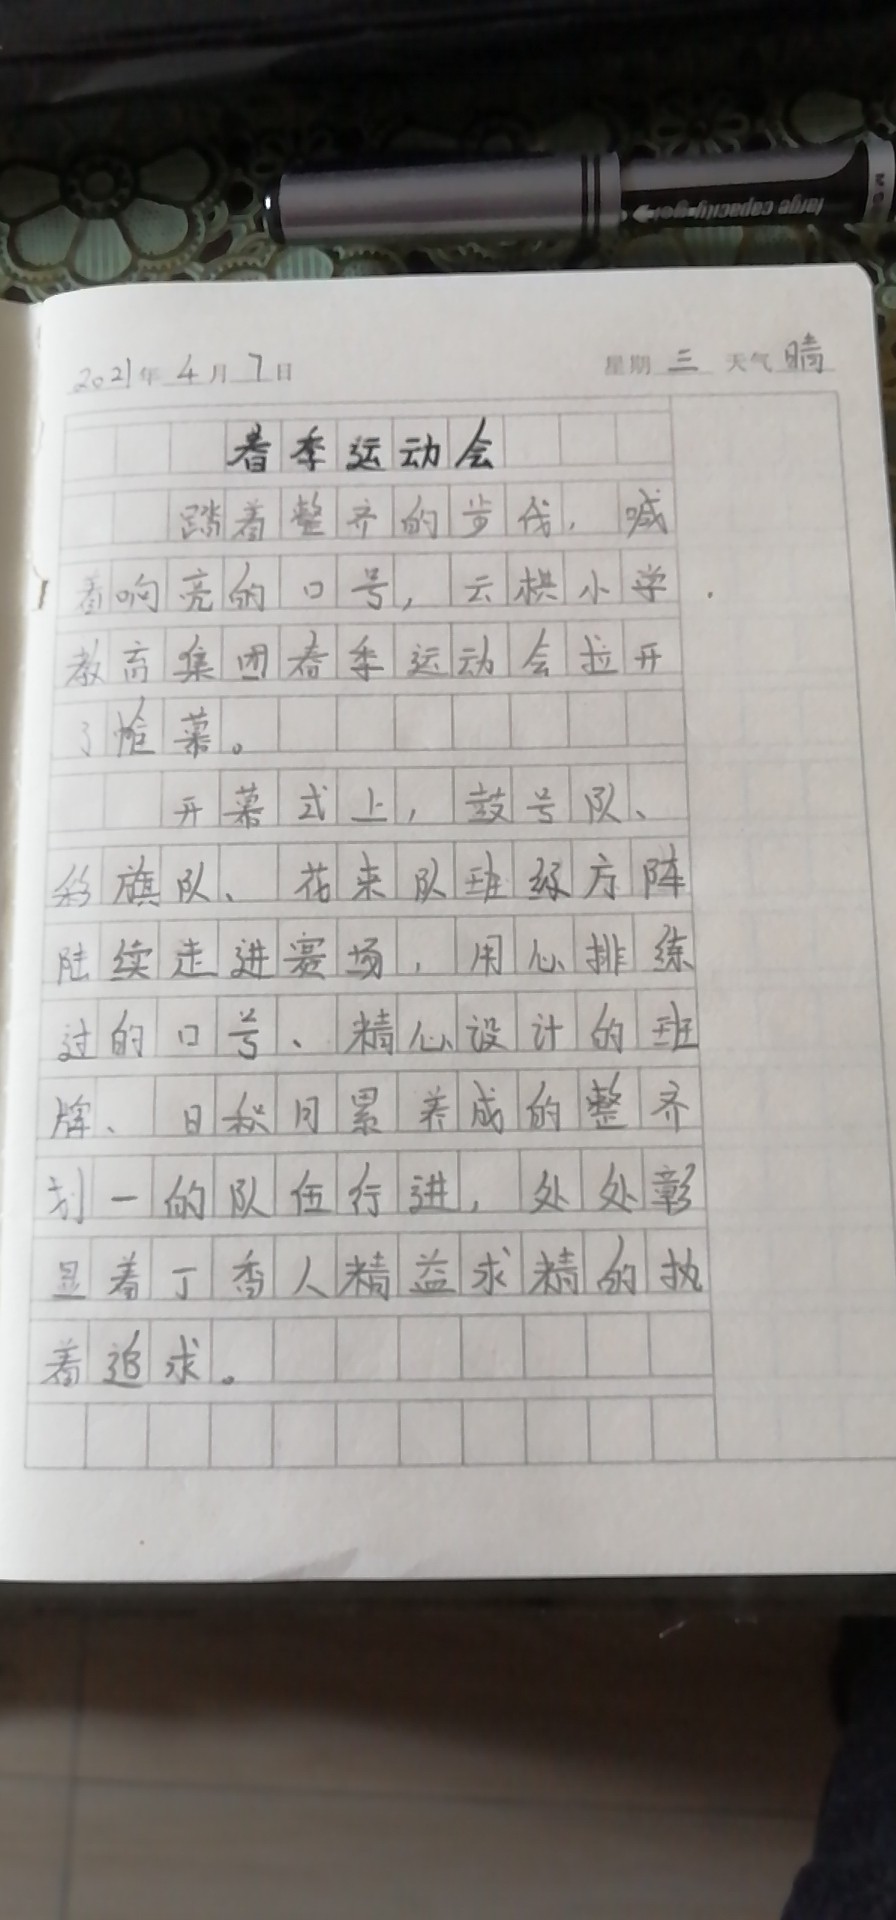 large capacity gel
2021年4月7日 星期三 天气晴
春季运动会
踏着整齐的步伐，喊
着响亮的口号，云栱小学
教育集团春季运动会拉开
了帷幕。
开幕式上，鼓号队、
彩旗队、花束队班级方阵
陆续走进赛场，用心排练
过的口号、精心设计的班
牌、日积月累养成的整齐
划一的队伍行进，处处彰
显着丁香人精益求精的执
着追求。